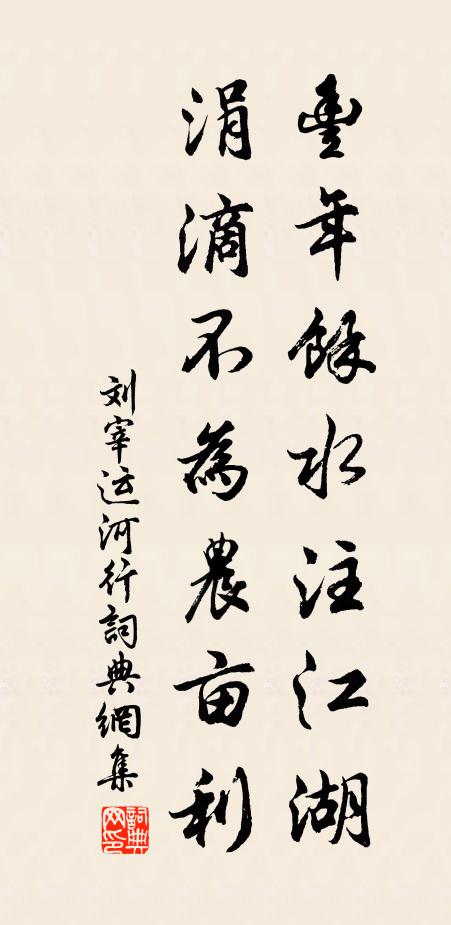 豐年餘水注江湖
涓滴不為農亩利
刘宰运河行詞典網集
詞典網印